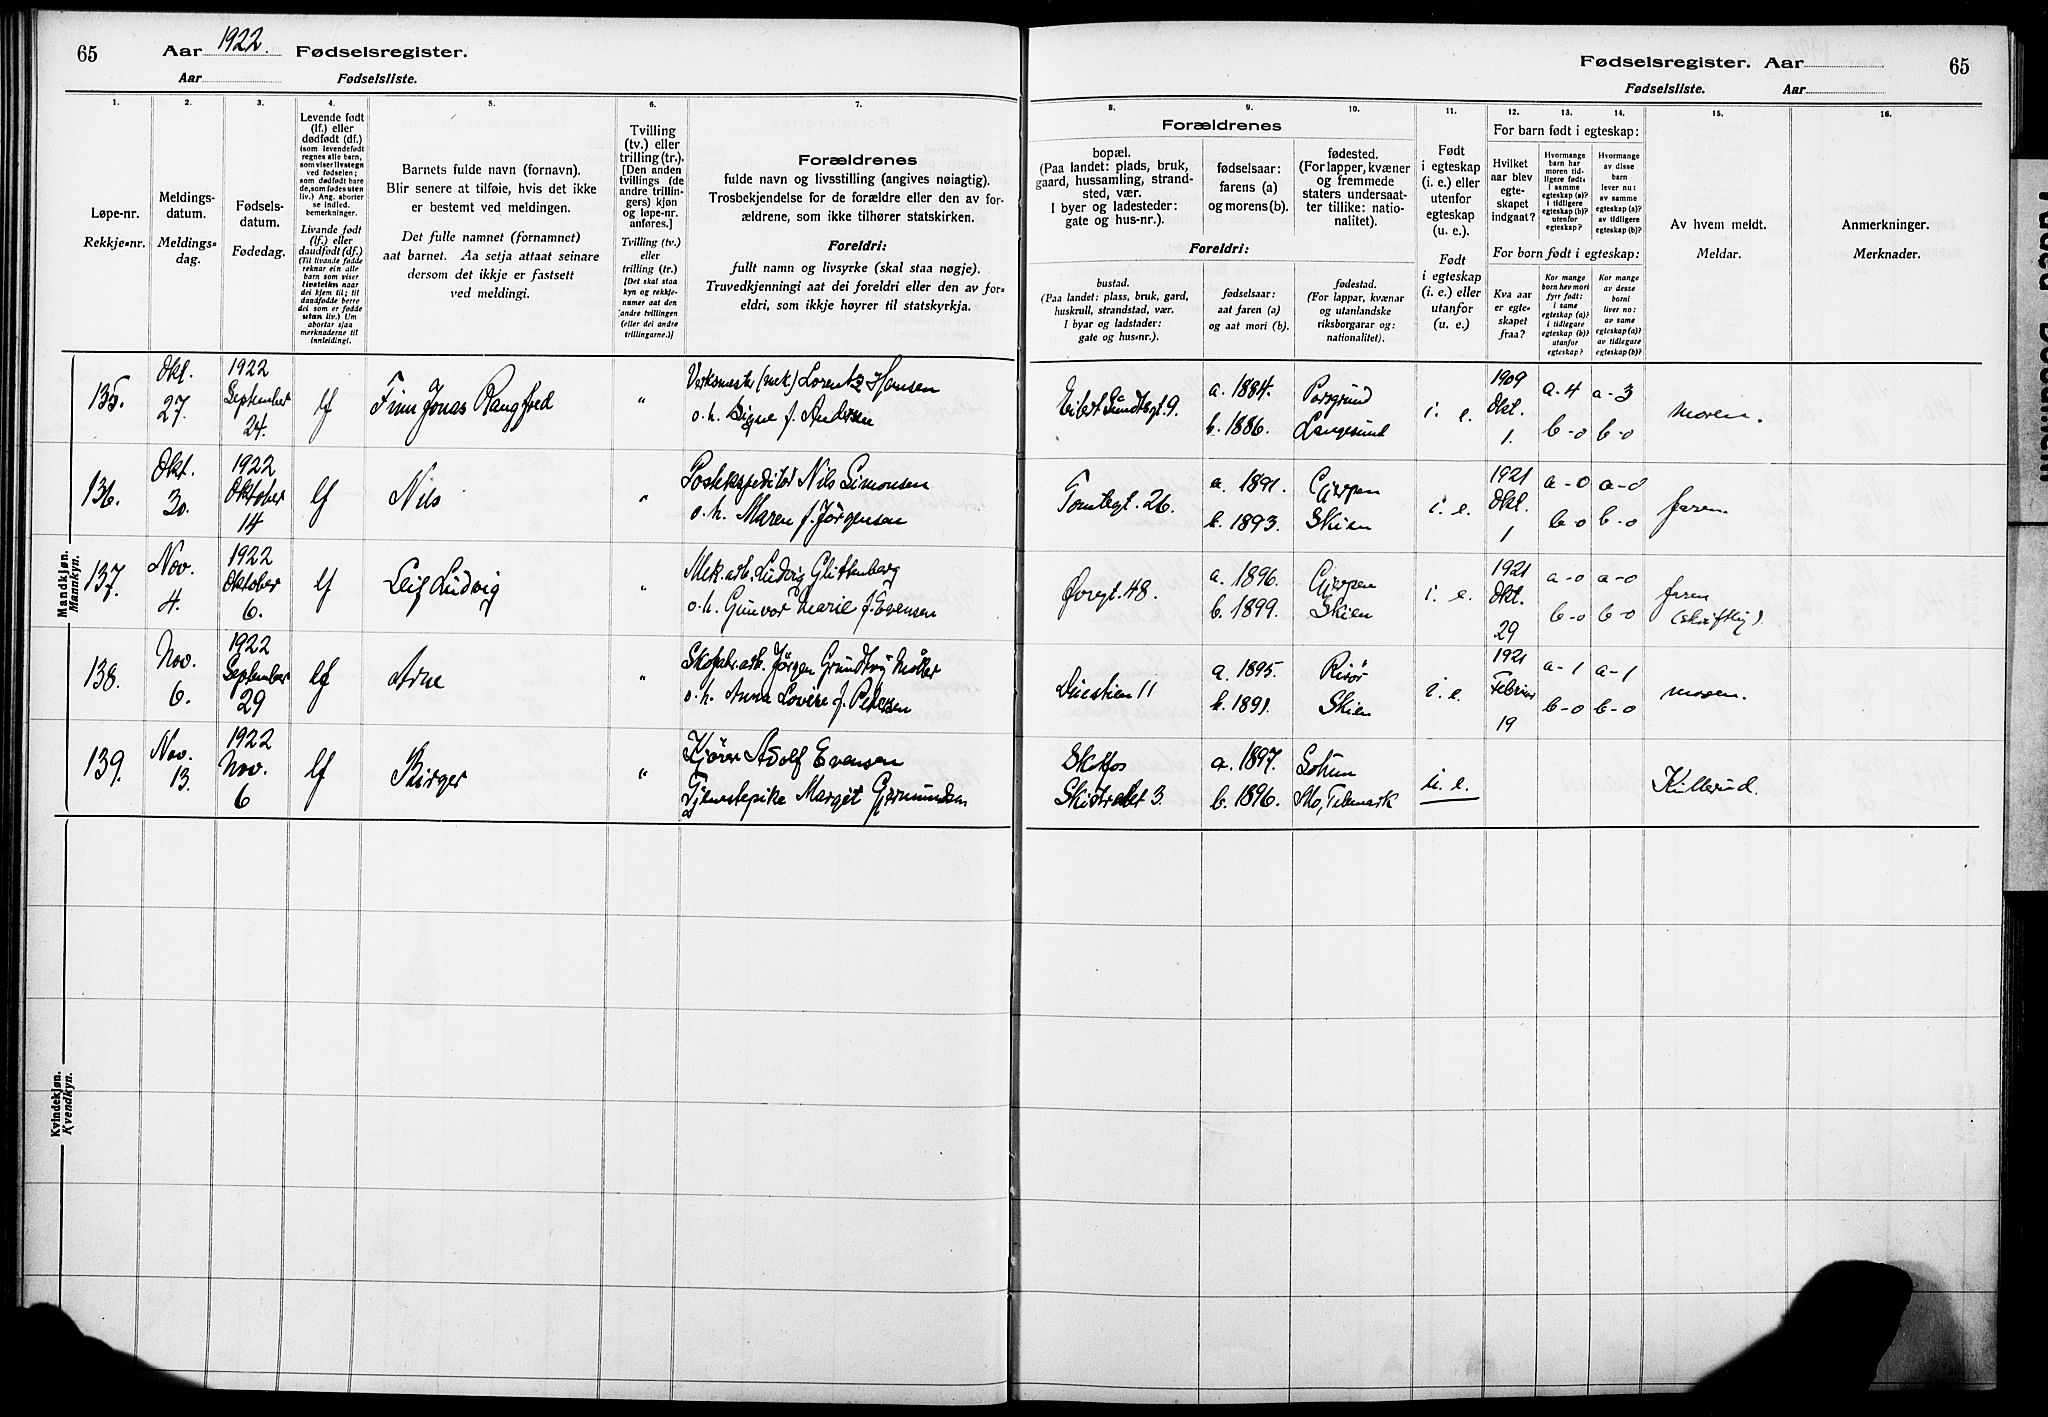 65 Aar 1922. Fødselsregister.
Aar Fødselsliste.
1.
2.
3.
4.
5.
6.
7.
Løpe-nr.
Rekkje=nr.
Meldings-
datum.
Meldings=
dag.
Fødsels-
datum.
Fødedag.
Levende født
(lf.) eller
dødfødt (df.)
(som levendefødt
regnes alle barn,
som viser livstegn
ved fødselen;
som dødfødt bare
de, som fødes uten
liv.) Ang. aborter
se indled.
bemerkninger.
Livande født
(lf.) eller
daudfødt (df.)
(Til livande fødde
reknar ein alle
barn som viser
livsteikn naar
dei kjem til; til
daudfødde berre
dei som er fødde
utan liv.) Um
abortar sjaa
merknaderne til
innleidingi.
Barnets fulde navn (fornavn).
Blir senere at tilføie, hvis det ikke
er bestemt ved meldingen.
Det fulle namnet (fornamnet)
aat barnet. Aa setja attaat seinare
dersom det ikkje er fastsett
ved meldingi.
Tvilling
(tv.) eller
trilling (tr.).
[Den anden
tvillings (de
andre trillin-
gers) kjøn
og løpe-nr.
anføres.]
Tvilling (tv.)
eller
trilling (tr.)
[Det skal staa
kyn og rekkje-
numer aat den
andre tvillingen
(eller dei andre
trillingarne.)]
Forældrenes
fulde navn og livsstilling (angives nøiagtig).
Trosbekjendelse for de forældre eller den av for-
ældrene, som ikke tilhører statskirken.
Foreldri:
fullt namn og livsyrke (skal staa nøgje).
Truvedkjenningi aat dei foreldri eller den av for=
eldri, som ikkje høyrer til statskyrkja.
Mandkjøn.
Mannkyn.
135.
Okt.
27.
1922
September
24.
lf
Finn Jonas Rangfred
"
Verksmester (mek) Lorentz Hansen
o. h. Signe f. Andersen
136.
Okt.
30.
1922
Oktober
14
lf
Nils
"
Postekspeditør Nils Simonsen
o. h. Maren f. Jørgensen
137.
Nov.
4.
1922
Oktober
6.
lf
Leif Ludvig
"
Mek. arb. Ludvig Glittenberg
o. h. Gunvor Marie f. Evensen
138.
Nov.
6.
1922
September
29
lf
Arne
"
Skofabr. arb. Jørgen Grundtvig Møller
o. h. Anna Lovise f. Petersen
139.
Nov.
13.
1922
Nov.
6
lf
Birger
"
Kjører Adolf Evensen
Tjenestepike Margit Gjermundsen
Kvindekjøn.
Kvendkyn.
Fødselsregister. Aar 65
Fødselsliste. Aar
8.
9.
10.
11.
12.
13.
14.
15.
16.
Forældrenes
bopæl.
(Paa landet: plads, bruk,
gaard, hussamling, strand-
sted, vær.
I byer og ladesteder:
gate og hus-nr.).
fødselsaar:
farens (a)
og morens (b).
fødested.
(For lapper, kvæner
og fremmede
staters undersaat-
ter tillike: natio-
nalitet).
Foreldri:
bustad.
(Paa landet: plass, bruk, gard,
huskrull, strandstad, vær.
I byar og ladstader:
gate og hus=nr.).
fødselsaar:
aat faren (a)
og aat mori (b).
fødestad.
(For lappar, kvænar
og utanlandske
riksborgarar og:
nationalitet).
Født
i egteskap
(i. e.) eller
utenfor
egteskap
(u. e.).
Født
i egteskap
(i. e.) eller
utanfor
(u. e.).
For barn født i egteskap:
Hvilket
aar blev
egte-
skapet
indgaat?
Hvormange
barn har
moren tid-
ligere født:
i samme
egteskap (a)?
i tidligere
egteskap (b)?
utenfor
egteskap?
Hvormange
av disse
barn
lever nu:
av samme
egteskap (a)?
av tidligere
egteskap (b)?
For born født i egteskap:
Kva aar
er egte-
skapet
fraa?
Kor mange
born hev mori
fyrr født:
i same
egteskap (a)?
i tidlegare
egteskap (b)?
utanfor
egteskap?
Kor mange
av desse
borni
liver nu:
av same
egteskap (a)?
av tidlegare
egteskap (b)?
Av hvem meldt.
Meldar.
Anmerkninger.
Merknader.
Eilert Sundtsgt. 9.
a. 1884.
b. 1886.
Porsgrund
Langesund
i. e.
1909
Okt.
1.
a-4
b-0
a-3
b-0
moren.
Tomtegt. 26.
a. 1891.
b. 1893.
Gjerpen
Skien
i. e.
1921
Okt.
1
a-0
b-0
a-0
b-0
faren.
Øvregt. 48.
a. 1896.
b. 1899.
Gjerpen
Skien
i. e.
1921
Okt.
29
a-0
b-0
a-0
b-0
faren
(skriftlig).
Duestien 11
a. 1895.
b. 1891.
Risør
Skien
i. e.
1921
Februar
19
a-1
b-0
a-1
b-0
moren.
Skotfos
Skistredet 3.
a. 1897.
b. 1896.
Solum
Mo, Telemark
u. e.
Killerud.